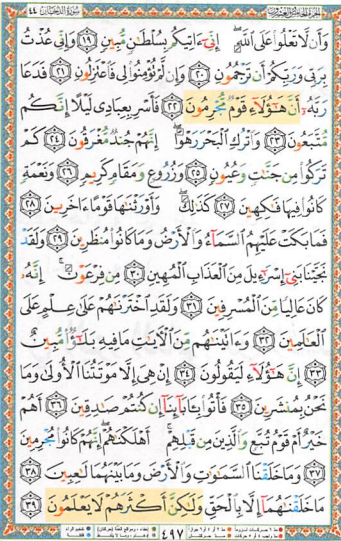 الجزء الخامس والعشرون ٤٤ سورة الدخان
وَأَن لَّا تَعْلُوا۟ عَلَى ٱللَّهِ ۖ إِنِّىٓ ءَاتِيكُم بِسُلْطَٰنٍ مُّبِينٍ ١٩ وَإِنِّى عُذْتُ
بِرَبِّى وَرَبِّكُمْ أَن تَرْجُمُونِ ٢٠ وَإِن لَّمْ تُؤْمِنُوا۟ لِى فَٱعْتَزِلُونِ ٢١ فَدَعَا
رَبَّهُۥٓ أَنَّ هَٰٓؤُلَآءِ قَوْمٌ مُّجْرِمُونَ ٢٢ فَأَسْرِ بِعِبَادِى لَيْلًا إِنَّكُم
مُّتَّبَعُونَ ٢٣ وَٱتْرُكِ ٱلْبَحْرَ رَهْوًا ۖ إِنَّهُمْ جُندٌ مُّغْرَقُونَ ٢٤ كَمْ
تَرَكُوا۟ مِن جَنَّٰتٍ وَعُيُونٍ ٢٥ وَزُرُوعٍ وَمَقَامٍ كَرِيمٍ ٢٦ وَنَعْمَةٍ
كَانُوا۟ فِيهَا فَٰكِهِينَ ٢٧ كَذَٰلِكَ ۖ وَأَوْرَثْنَٰهَا قَوْمًا ءَاخَرِينَ ٢٨
فَمَا بَكَتْ عَلَيْهِمُ ٱلسَّمَآءُ وَٱلْأَرْضُ وَمَا كَانُوا۟ مُنظَرِينَ ٢٩ وَلَقَدْ
نَجَّيْنَا بَنِىٓ إِسْرَٰٓءِيلَ مِنَ ٱلْعَذَابِ ٱلْمُهِينِ ٣٠ مِن فِرْعَوْنَ ۚ إِنَّهُۥ
كَانَ عَالِيًا مِّنَ ٱلْمُسْرِفِينَ ٣١ وَلَقَدِ ٱخْتَرْنَٰهُمْ عَلَىٰ عِلْمٍ عَلَى
ٱلْعَٰلَمِينَ ٣٢ وَءَاتَيْنَٰهُم مِّنَ ٱلْءَايَٰتِ مَا فِيهِ بَلَٰٓؤٌا۟ مُّبِينٌ
٣٣ إِنَّ هَٰٓؤُلَآءِ لَيَقُولُونَ ٣٤ إِنْ هِىَ إِلَّا مَوْتَتُنَا ٱلْأُولَىٰ وَمَا
نَحْنُ بِمُنشَرِينَ ٣٥ فَأْتُوا۟ بِـَٔابَآئِنَآ إِن كُنتُمْ صَٰدِقِينَ ٣٦ أَهُمْ
خَيْرٌ أَمْ قَوْمُ تُبَّعٍ وَٱلَّذِينَ مِن قَبْلِهِمْ ۚ أَهْلَكْنَٰهُمْ ۖ إِنَّهُمْ كَانُوا۟ مُجْرِمِينَ
٣٧ وَمَا خَلَقْنَا ٱلسَّمَٰوَٰتِ وَٱلْأَرْضَ وَمَا بَيْنَهُمَا لَٰعِبِينَ ٣٨
مَا خَلَقْنَٰهُمَآ إِلَّا بِٱلْحَقِّ وَلَٰكِنَّ أَكْثَرَهُمْ لَا يَعْلَمُونَ ٣٩
٤٩٧